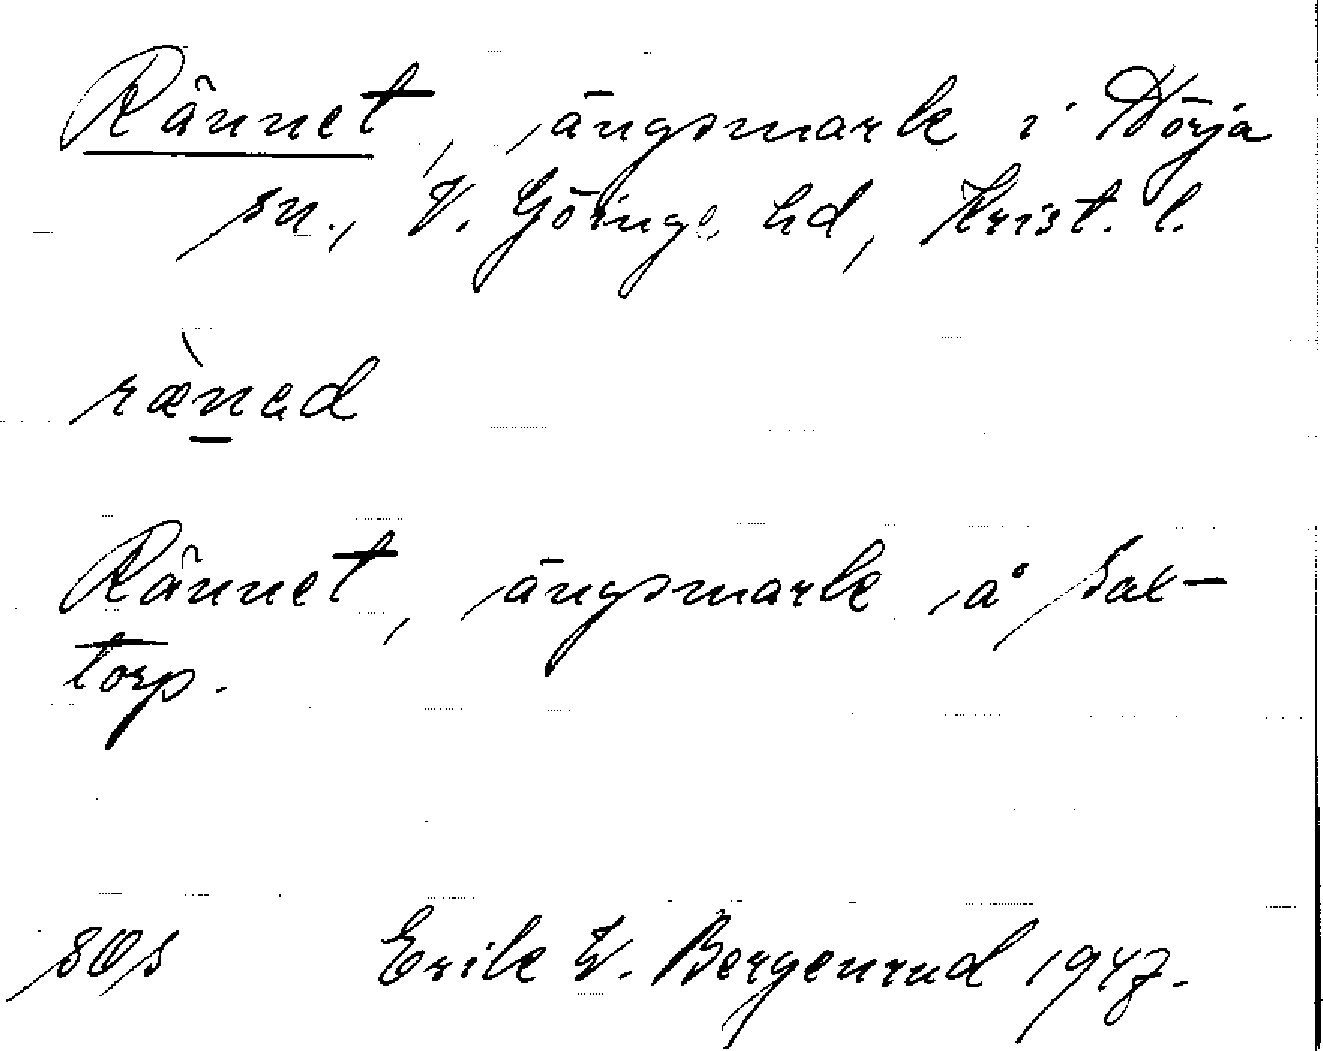 Rännet, ängsmark i Nörja
sn., V. Göinge hd, Krist. l.
ræ̀n̲ed
Rännet, ängsmark å Sax-
torp.
Erik W. Bergenrud 1947.